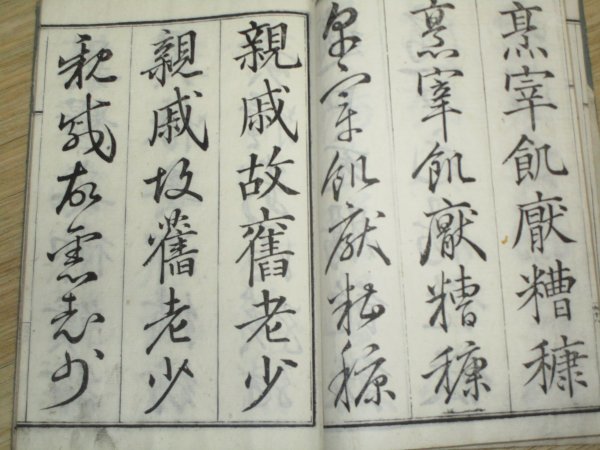 烹宰飢厭糟糠
烹宰飢厭糟糠
烹宰飢厭糟糠
親戚故舊老少
親戚故舊老少
親戚故舊老少